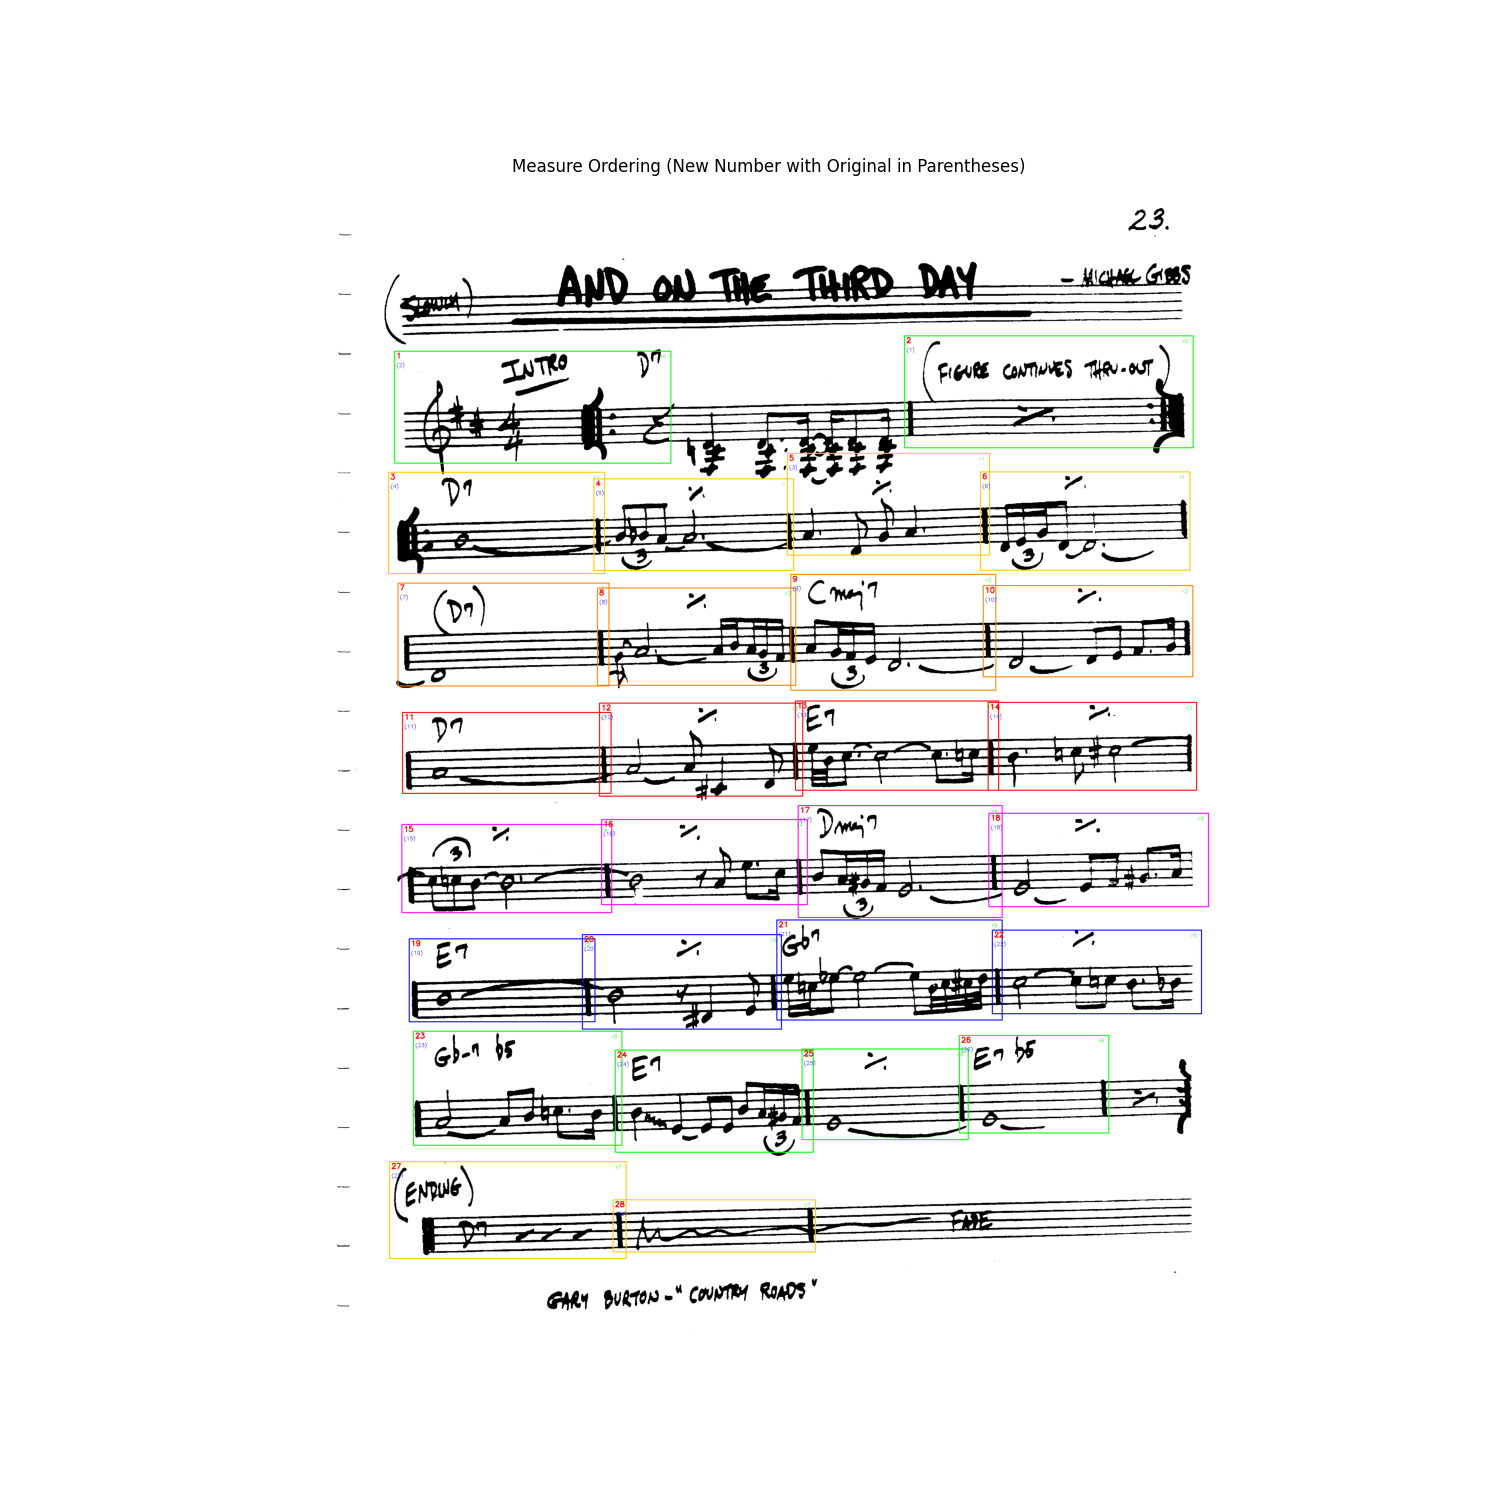 Measure Ordering (New Number with Original in Parentheses)
23.
(SLOWLY) AND ON THE THIRD DAY - MICHAEL GIBBS
1 (2) INTRO D7 2 (1) (FIGURE CONTINUES THRU-OUT)
4
4
3 (4) D7 4 (5) 5 (3) 6 (6)
3 3
7 (7) (D7) 8 (8) 9 (9) Cmaj7 10 (10)
3 3
11 (11) D7 12 (12) 13 E7 14 (14)
15 (15) 3 16 (16) 17 (17) Dmaj7 18 (18)
3
19 (19) E7 20 (20) 21 (21) Gb7 22 (22)
23 (23) Gb-7 b5 24 (24) E7 25 (25) 26 (26) E7 b5
3
27 (ENDING) 28
D7 FADE
GARY BURTON - "COUNTRY ROADS"